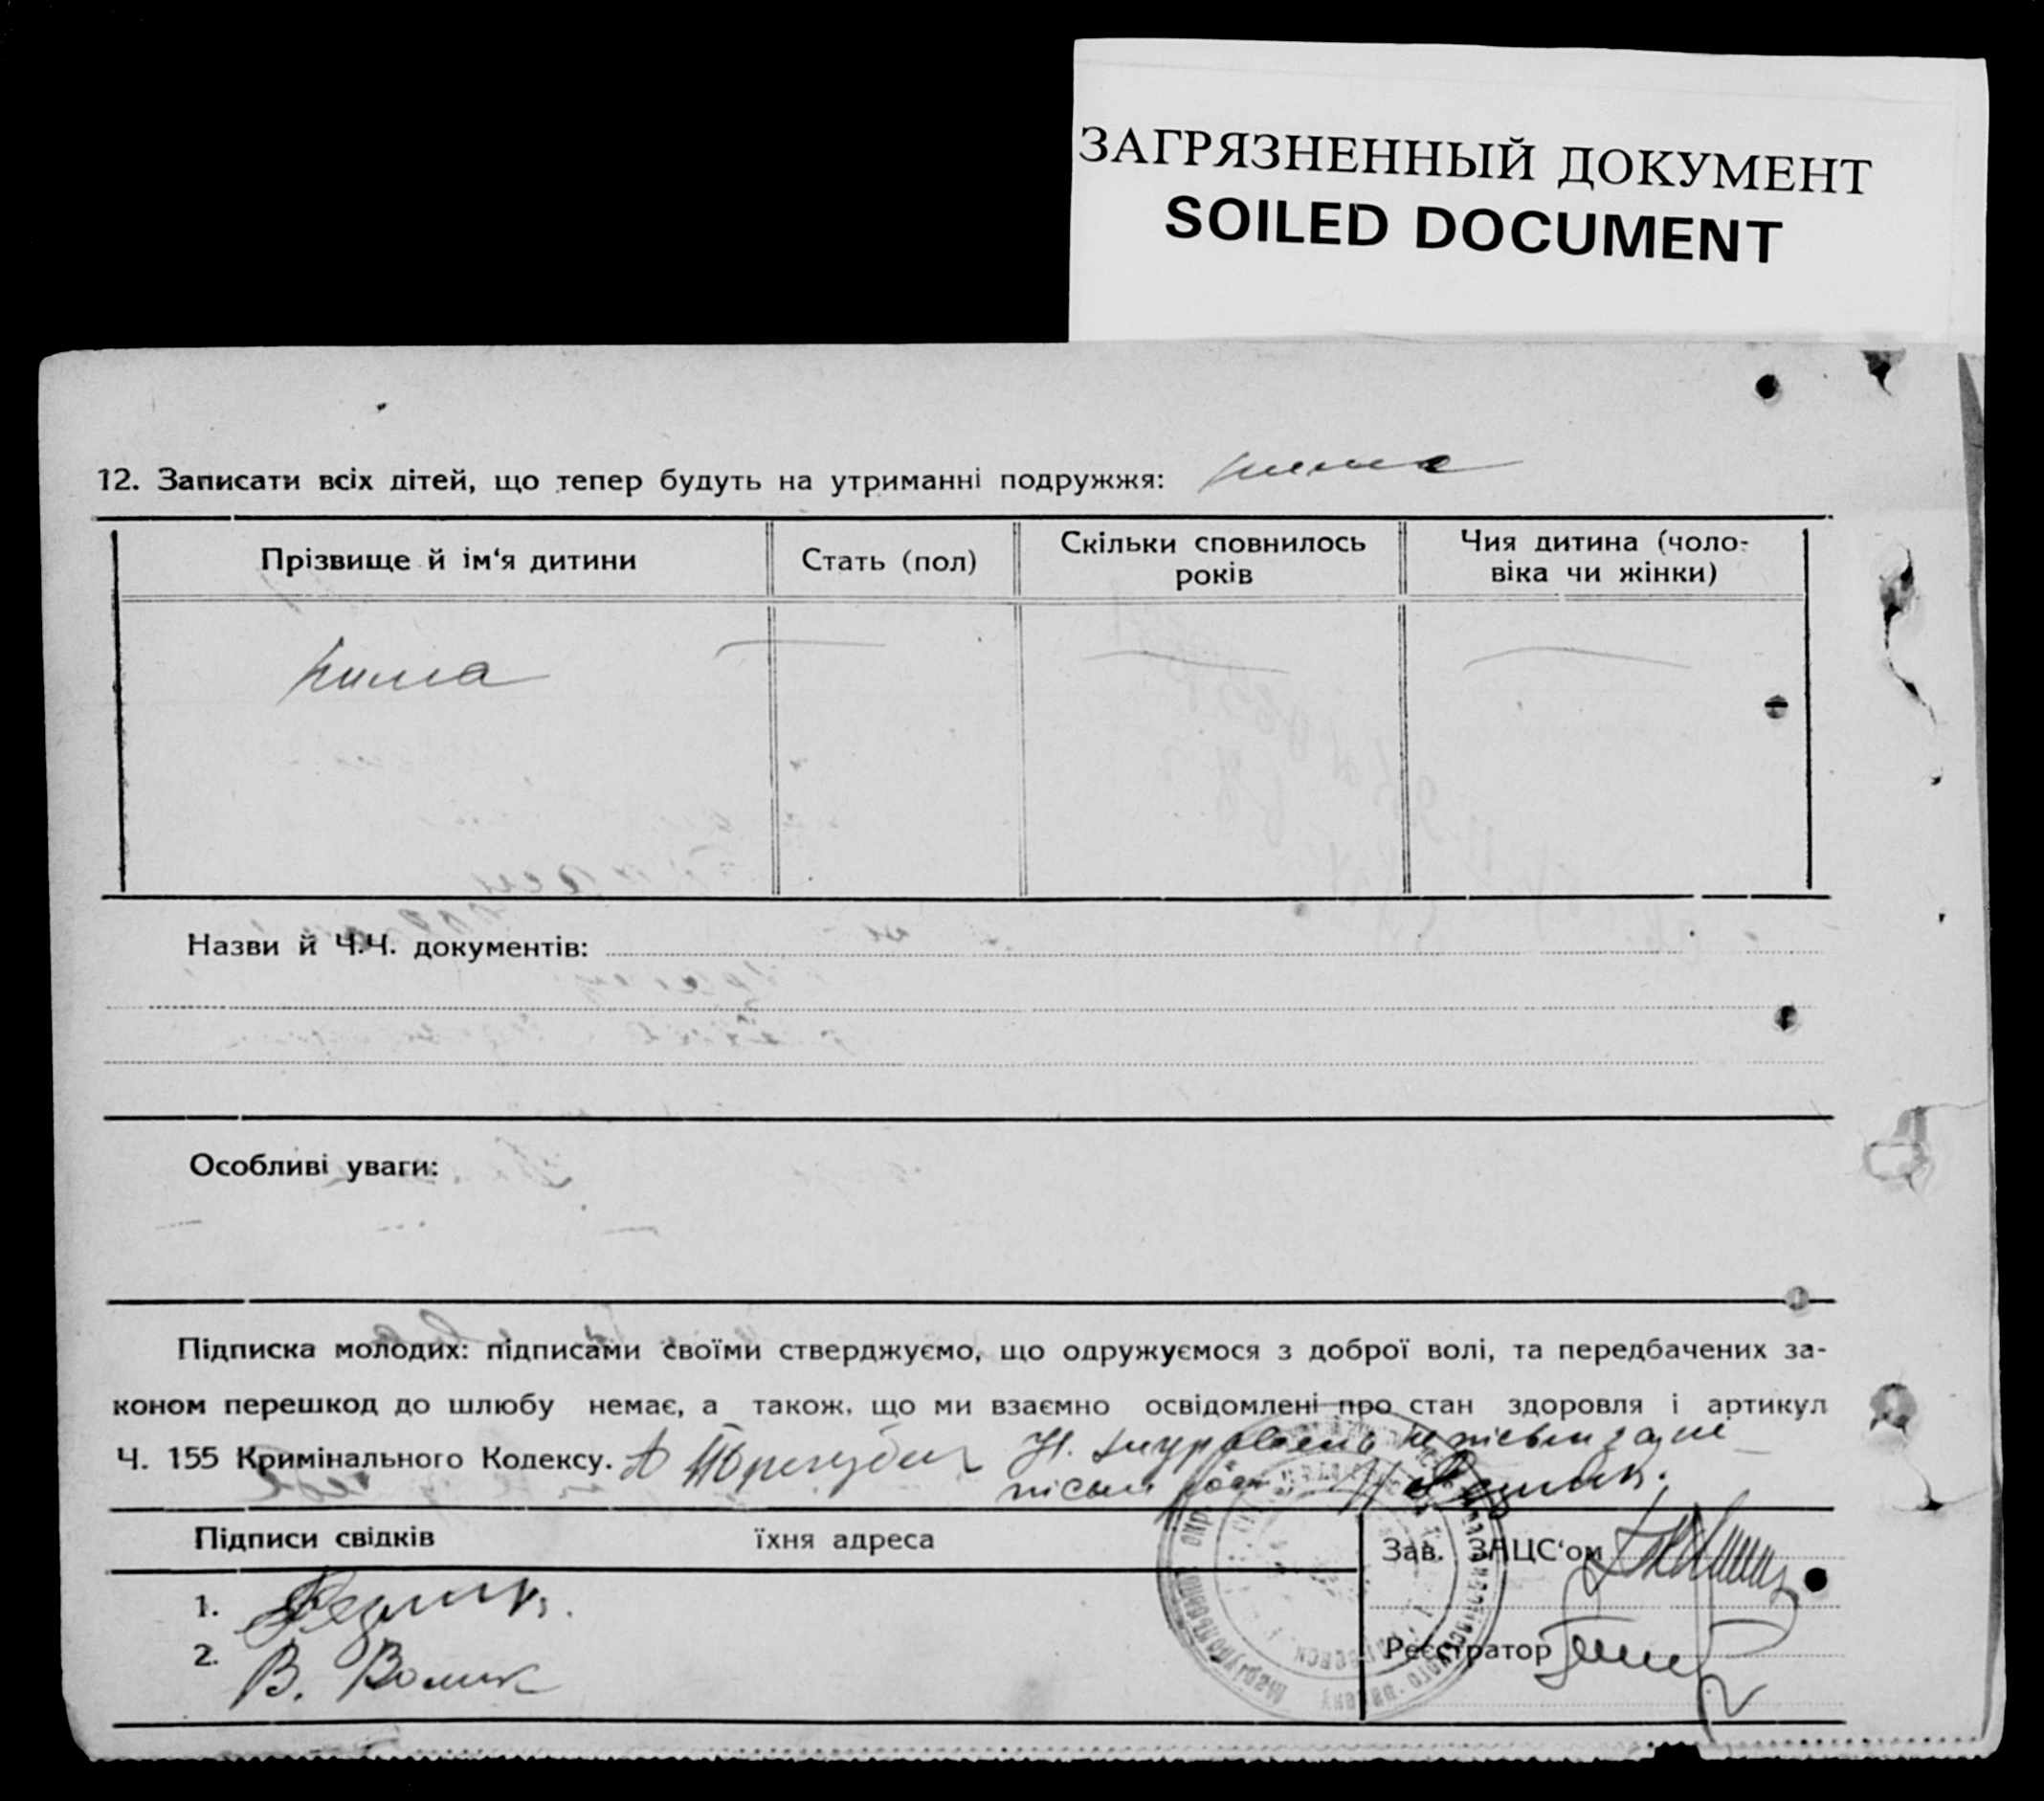 ЗАГРЯЗНЕННЫЙ ДОКУМЕНТ
SOILED DOCUMENT
12. Записати всіх дітей, що тепер будуть на утриманні подружжя: нима
Прізвище й ім‘я дитини
Стать (пол)
Скільки сповнилось
років
Чия дитина (чоло-
віка чи жінки)
нима
Назви й Ч.Ч. документів:
Особливі уваги:
Підписка молодих: підписами своїми стверджуємо, що одружуємося з доброї волі, та передбачених за-
коном перешкод до шлюбу немає, а також, що ми взаємно освідомлені про стан здоровля і артикул
Ч. 155 Кримінального Кодексу.
Підписи свідків
їхня адреса
Зав. ЗАЦС‘ом
1.
2. В. Волик
Реєстратор